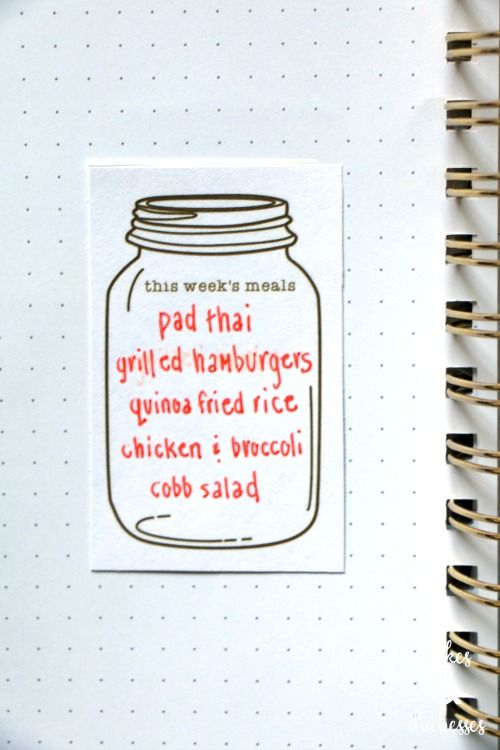 this week's meals
pad thai
grilled hamburgers
quinoa fried rice
chicken & broccoli
cobb salad